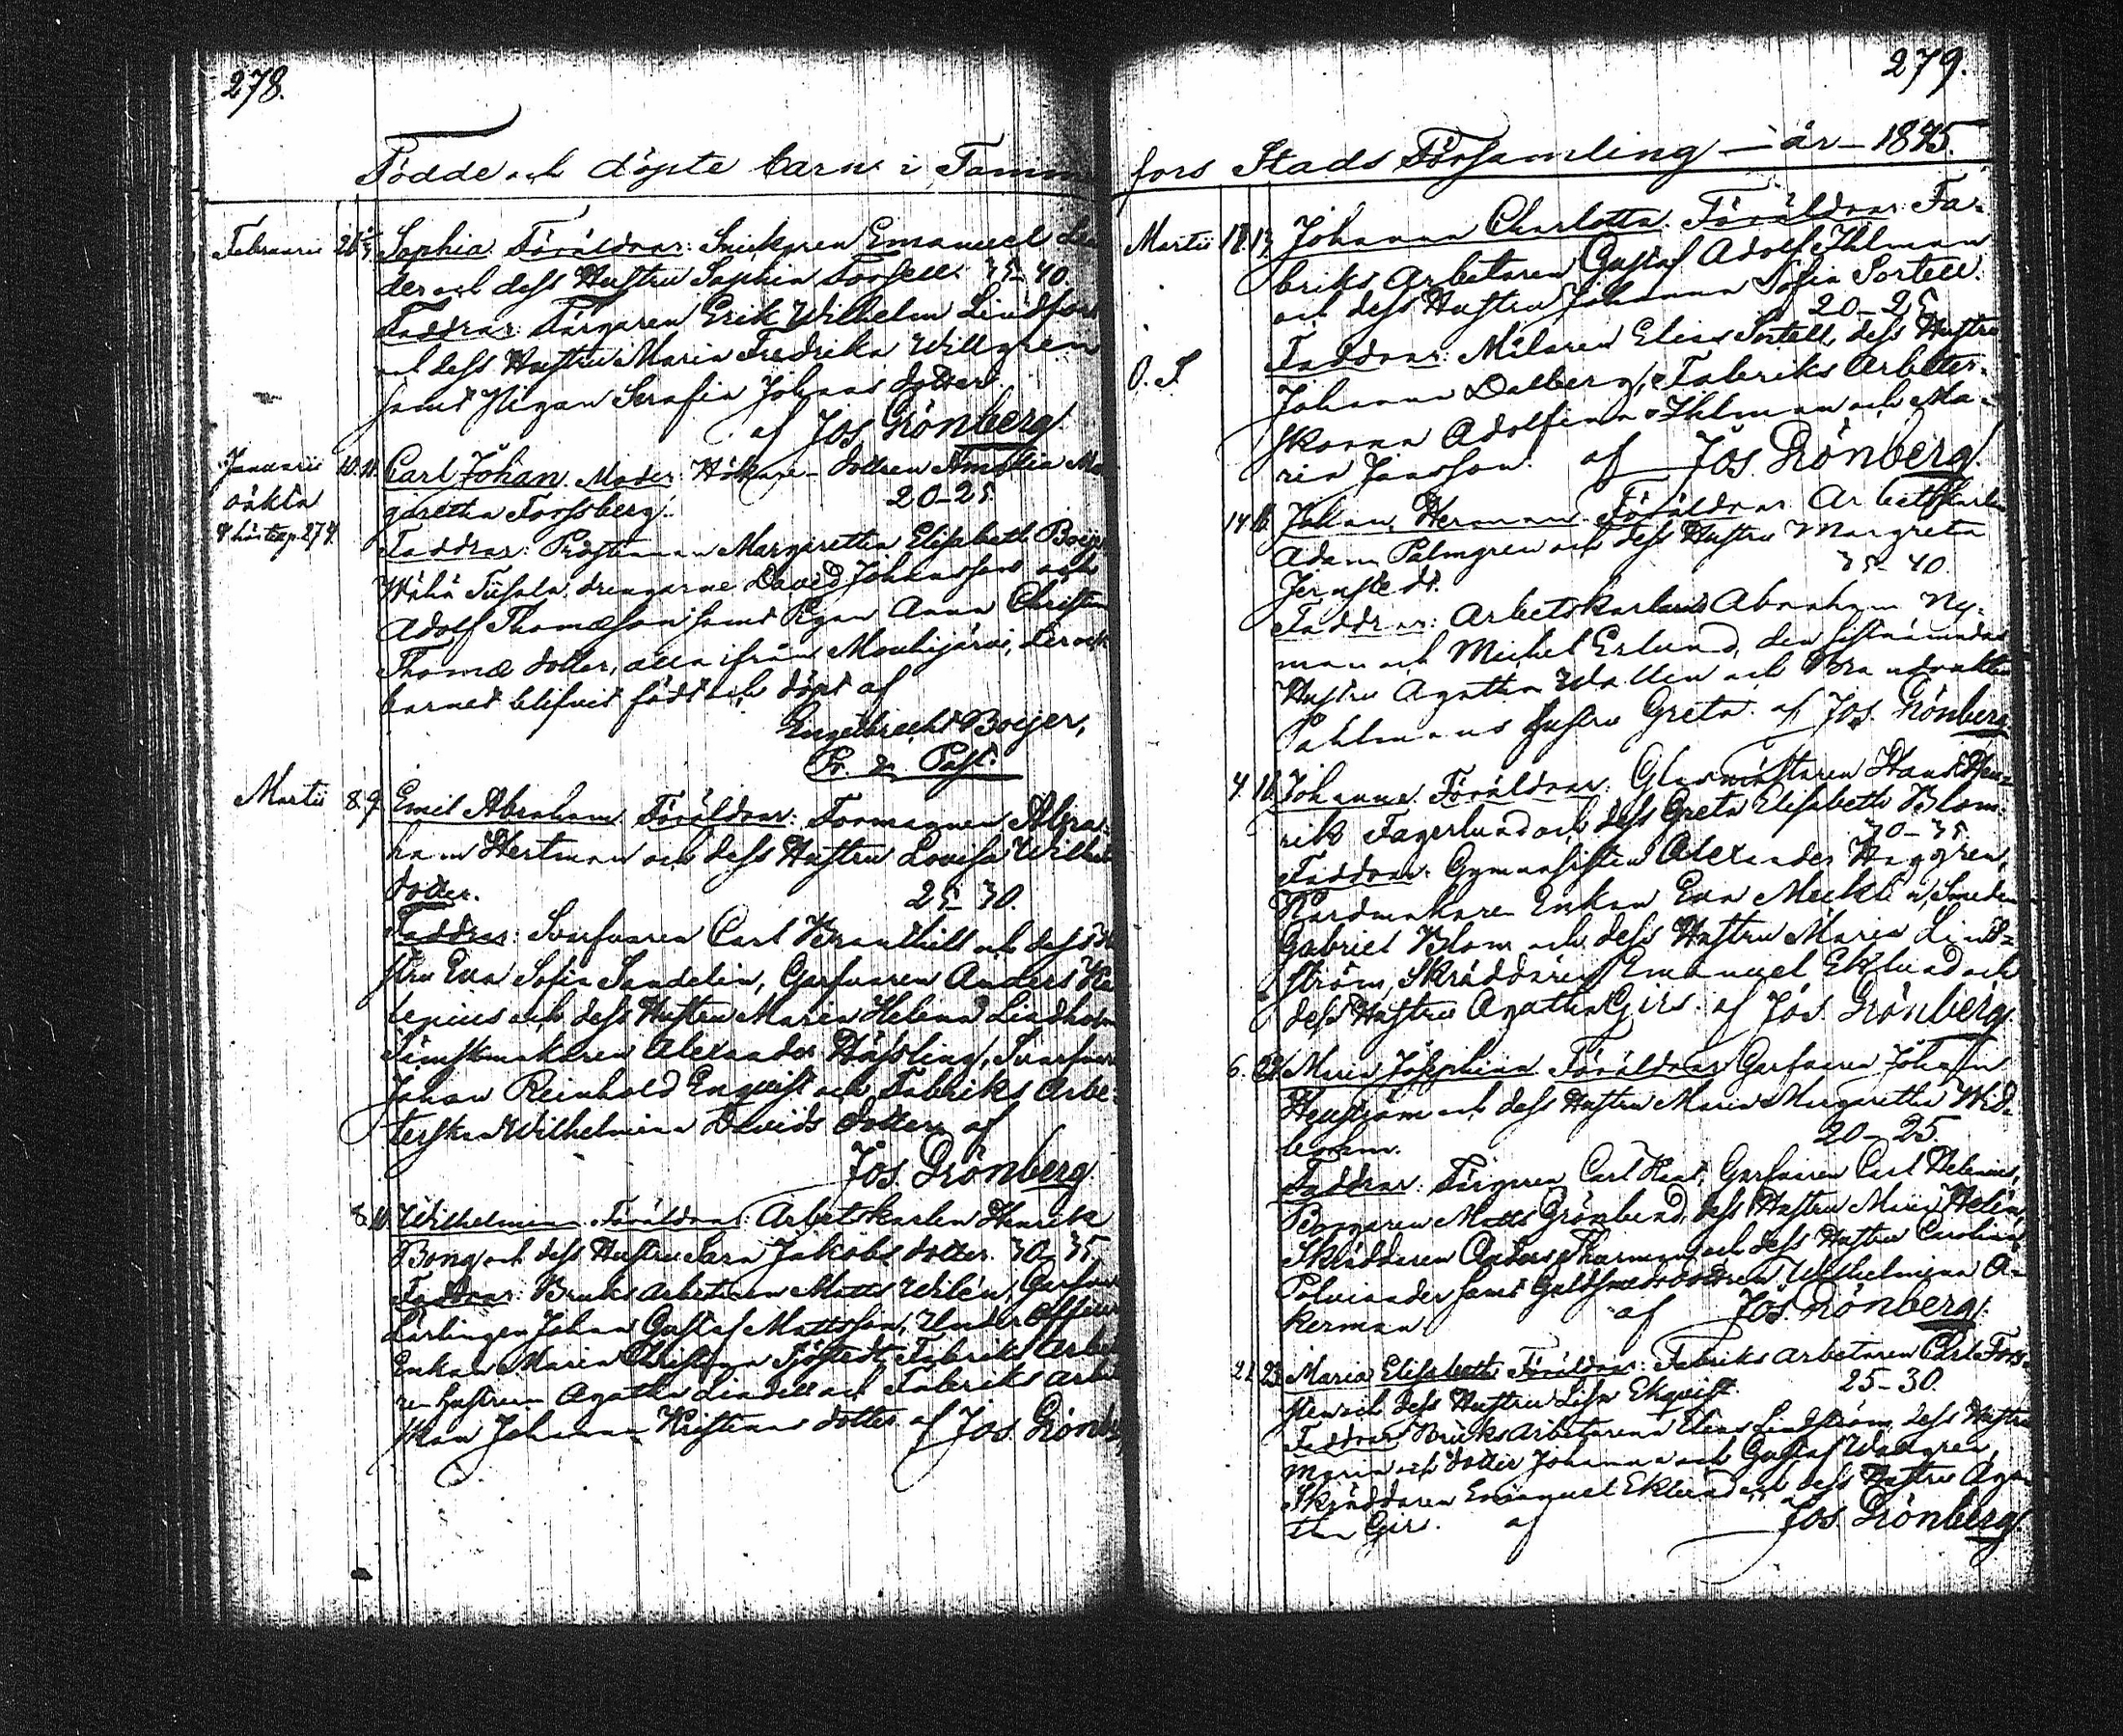 278.
Födde och döpte barn i Tam
Februarii 26 Sophia Föräldrar: Snickaren Emanuel
der och dess Hustru Sophia Forssell. 35-40.
Faddrar: Färgaren Erik Wilhelm Lindfors
och dess Hustru Maria Fredrika Willgren
samt Pigan Serafia Johans dotter.
af Jos. Grönberg
Januarii 10. 11. Carl Johan Moder: Hökare dottren Amalia Ma
oäkta
garetha Forssberg. 20-25
Faddrar: Prostinnan Margaretha Elisabeth Boije
drengarne David Johansson och
Adolf Thomasson samt Pigan Anna Christina
Thomæ dotter, alla ifrån Mouhijärvi, der ock
barnet blifvit född och döpt af
Engelbrecht Boijer,
Pr. & Past.
Martii 8. 9. Emil Abraham Föräldrar: Formannen Abra-
ham Hertman och dess Hustru Lovisa Wilhelms
dotter. 25-30.
Faddrar: Svarfvaren Carl Branthill och dess Hu
stru Eva Sofia Sandelin, Garfvaren Anders He
lenius och dess Hustru Maria Helena Lindholm
Sämskmakaren Alexander Hässling, Svarfvare
Johan Reinhold Enqvist och Fabriks Arbe-
terskan Wilhelmina Davids dotter af
Jos. Grönberg
8. 10. Wilhelmina Föräldrar: Arbetskarlen Henrik
Bong och dess Hustru Sara Jakobs dotter. 30-35.
Faddrar: Bruks Arbetaren Matts Wilén, Garfvare
Lärlingen Johan Gustaf Mattsson, Under Officers
Enkan Maria Christina Sjöstedt, Fabriks Arbeta
ren hustrun Agatha Lindell och Fabriks arbe
skan Johanna Kristians dotter af Jos. Grönb
279.
fors Stads Församling - år - 1845.
Martii 12. 13. Johanna Charlotta. Föräldrar: Fa-
briks Arbetaren Gustaf Adolf Ihlman
och dess Hustru Johanna Sofia Sortell.
20-25
Faddrar: Målaren Elias Sortell, dess Hustru
O. S.
Johanna Dalberg, Fabriks Arbeter-
skorna Adolfina Ihlman och Ma-
ria Jansson. af Jos. Grönberg.
14. 16. Johan Herman Föräldrar Arbetskarlen
Adam Palmgren och dess Hustru Margreta
Jernstedt. 35-40.
Faddrar: Arbetskarlarne Abraham Ny-
man och Michel Erlund, den sistnämndas
Hustru Agatha Wallen och Brandvakten
Pahlmans hustru Greta. af Jos. Grönberg
4. 16. Johanna Föräldrar: Glasmästaren Hans Hen-
rik Fagerlund och dess Greta Elisabeth Blom.
30-35
Faddrar: Gymnasisten Alexander Haggren,
Kardmakare Enkan Eva Mecklin, Smeden
Gabriel Blom och dess Hustru Maria Lind-
ström, Skräddaren Emanuel Eklund och
dess Hustru Agatha Girs. af Jos. Grönberg
6. 22. Maria Josephina Föräldrar Garfvaren Johan
Henström och dess Hustru Maria Margaretha Wid-
bom. 20-25.
Faddrar: Färgaren Carl Kant, Garfvaren Carl Helenius,
Borgaren Matts Grönlund, dess Hustru Maria Helin,
Skräddaren Anders Thurman och dess Hustru Carolina
Polviander samt Guldsmedsdottren Wilhelmina Å-
kerman. af Jos. Grönberg.
21. 23. Maria Elisabeth Föräldrar: Fabriks arbetaren Carl Fors-
sten och dess Hustru Lisa Ekqvist. 25-30.
Faddrar Bruks Arbetarena Elias Lindström, dess Hustru
Maria och dotter Johanna och Gustaf Wallgren,
Skräddaren Emanuel Eklund och dess Hustru Aga-
tha Girs. af Jos. Grönberg